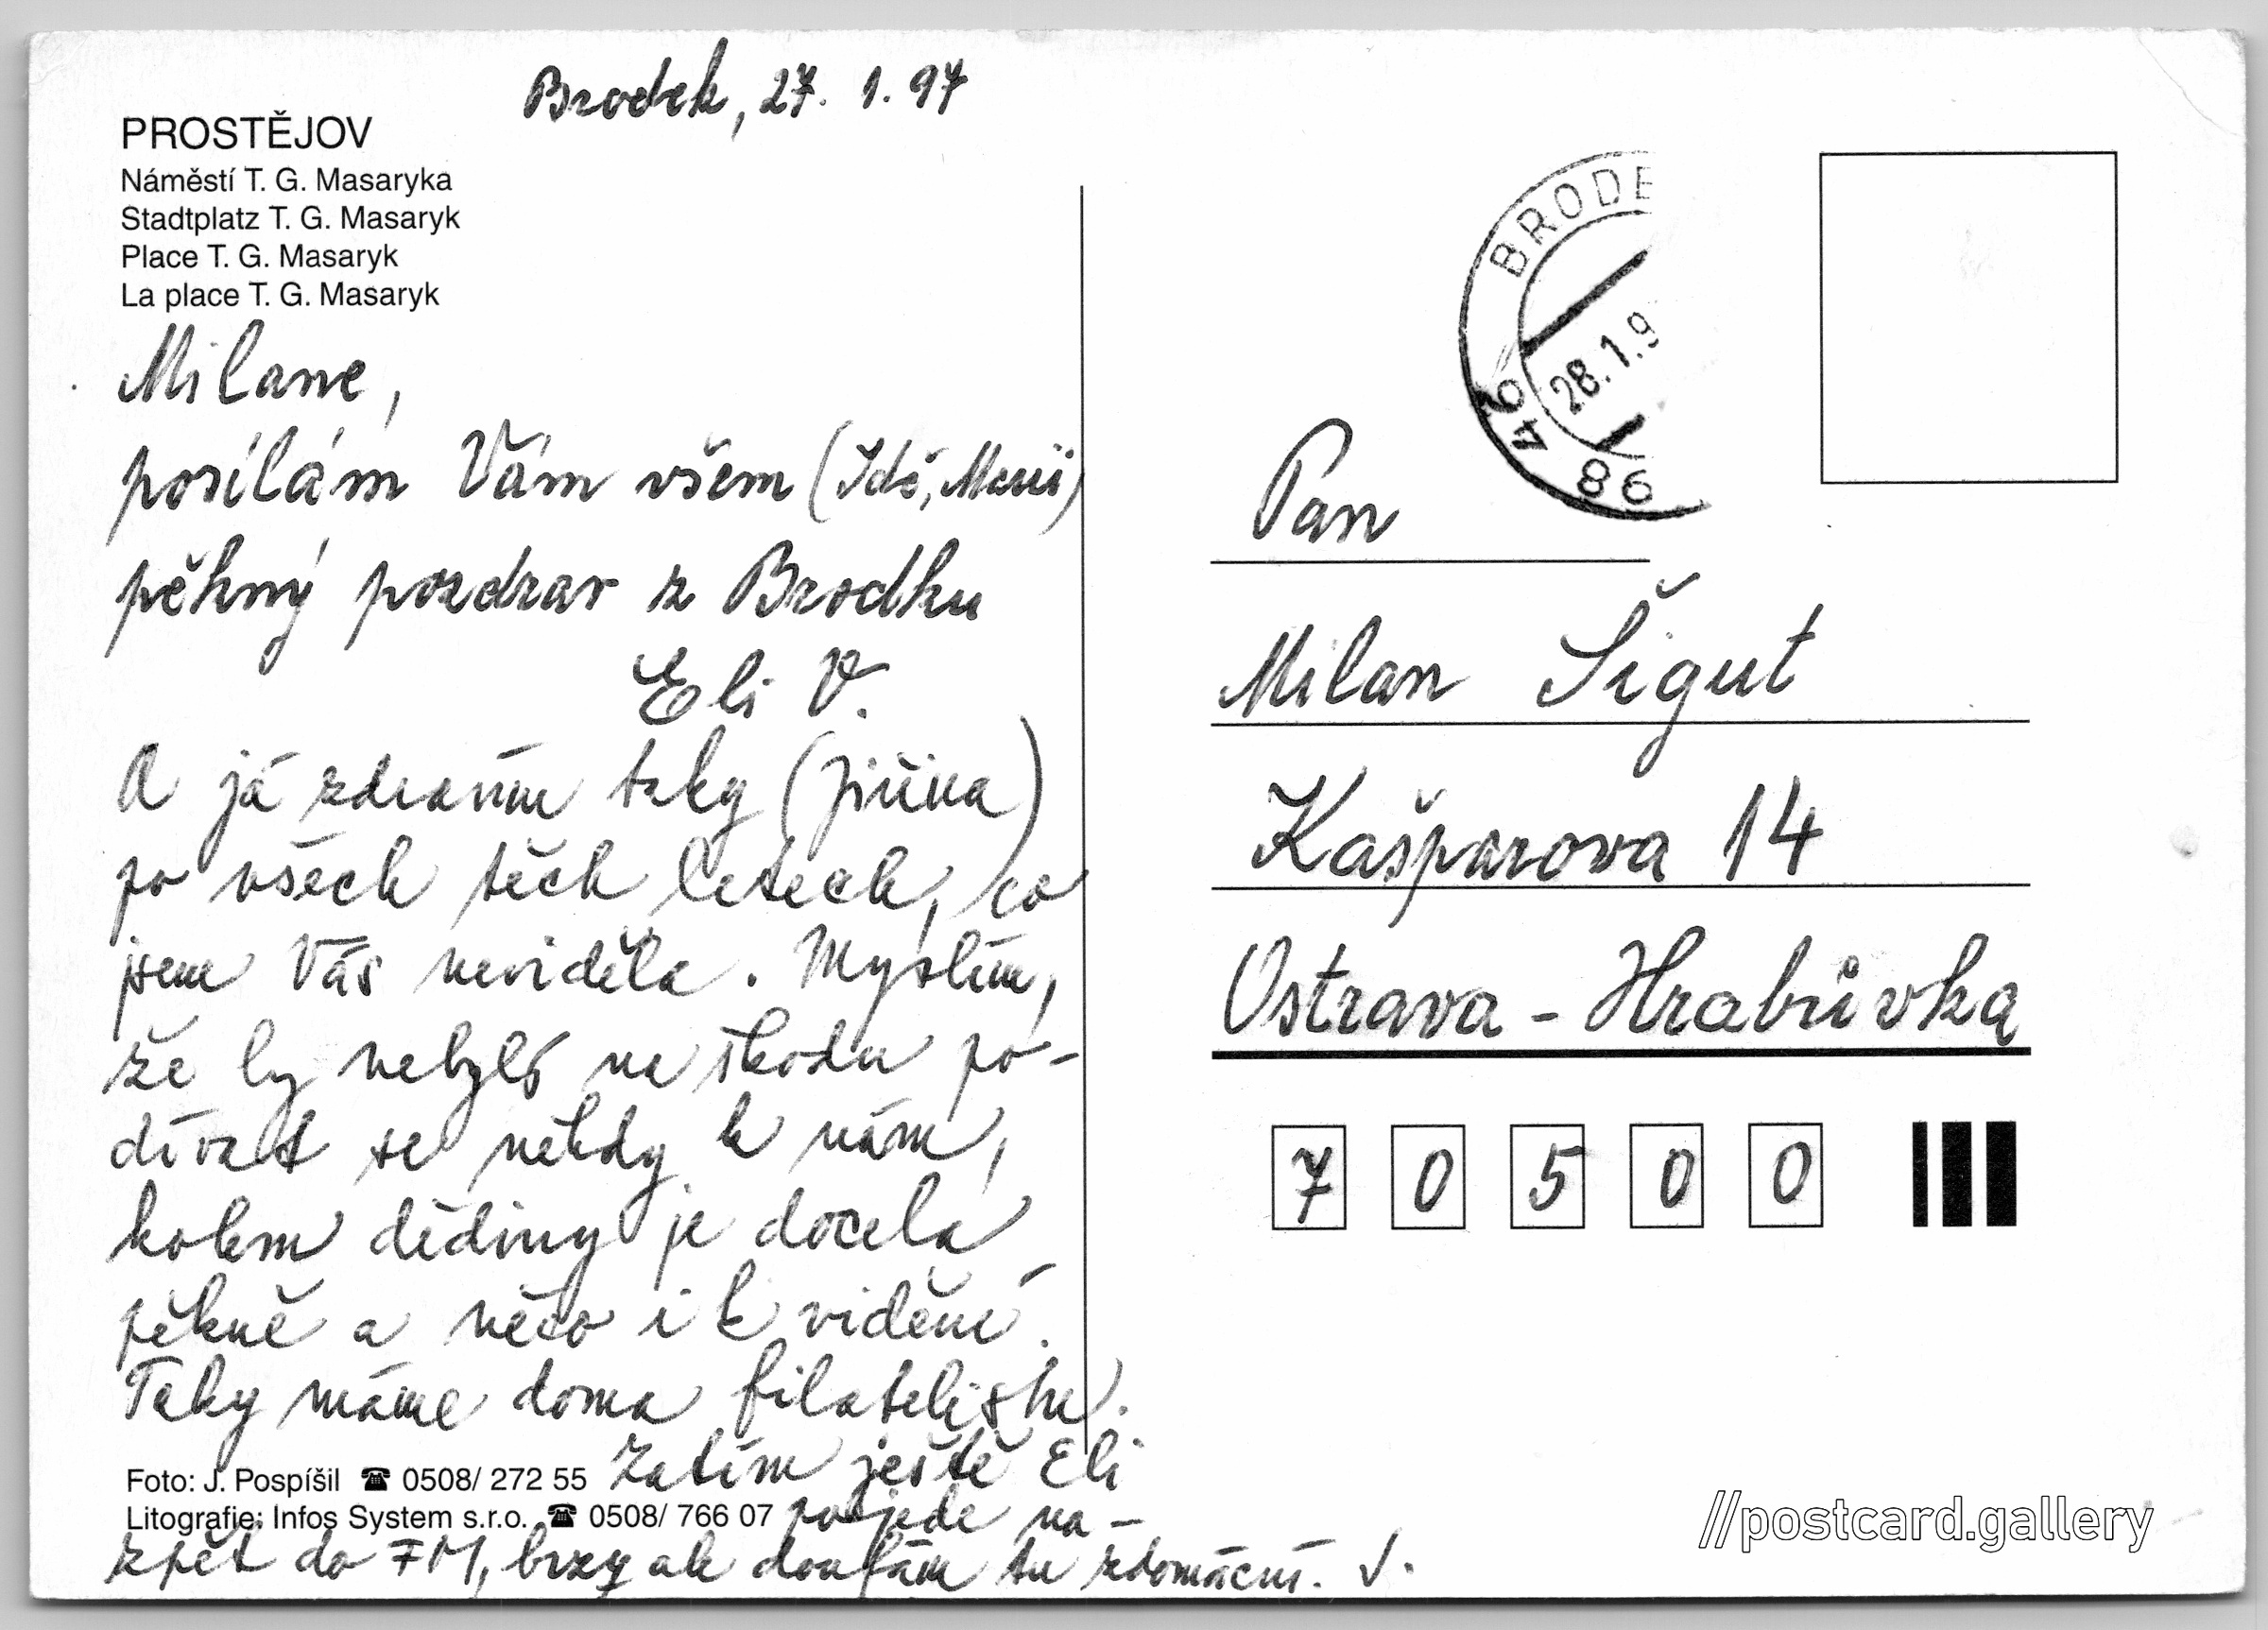 Brodek, 27. 1. 97
PROSTĚJOV
Náměstí T. G. Masaryka
Stadtplatz T. G. Masaryk
Place T. G. Masaryk
La place T. G. Masaryk
Milane,
posílám Vám všem (Idě, Marii)
pěkný pozdrav z Brodku
Eli V.
A já zdravím taky (Jiřina)
po všech těch letech, co
jsem Vás neviděla. Myslím,
že by nebylo na škodu po-
dívat se někdy k nám,
kolem dědiny je docela
pěkně a něco i k vidění.
Taky máme doma filatelistu.
Zatím ještě Eli
pojede na-
zpět do FM, brzy ale doufám tu zdomácní. J.
Foto: J. Pospíšil ☎ 0508/ 272 55
Litografie: Infos System s.r.o. ☎ 0508/ 766 07
BRODE
28.1.9
798 46
Pan
Milan Šigut
Kašparova 14
Ostrava - Hrabůvka
7 0 5 0 0
//postcard.gallery